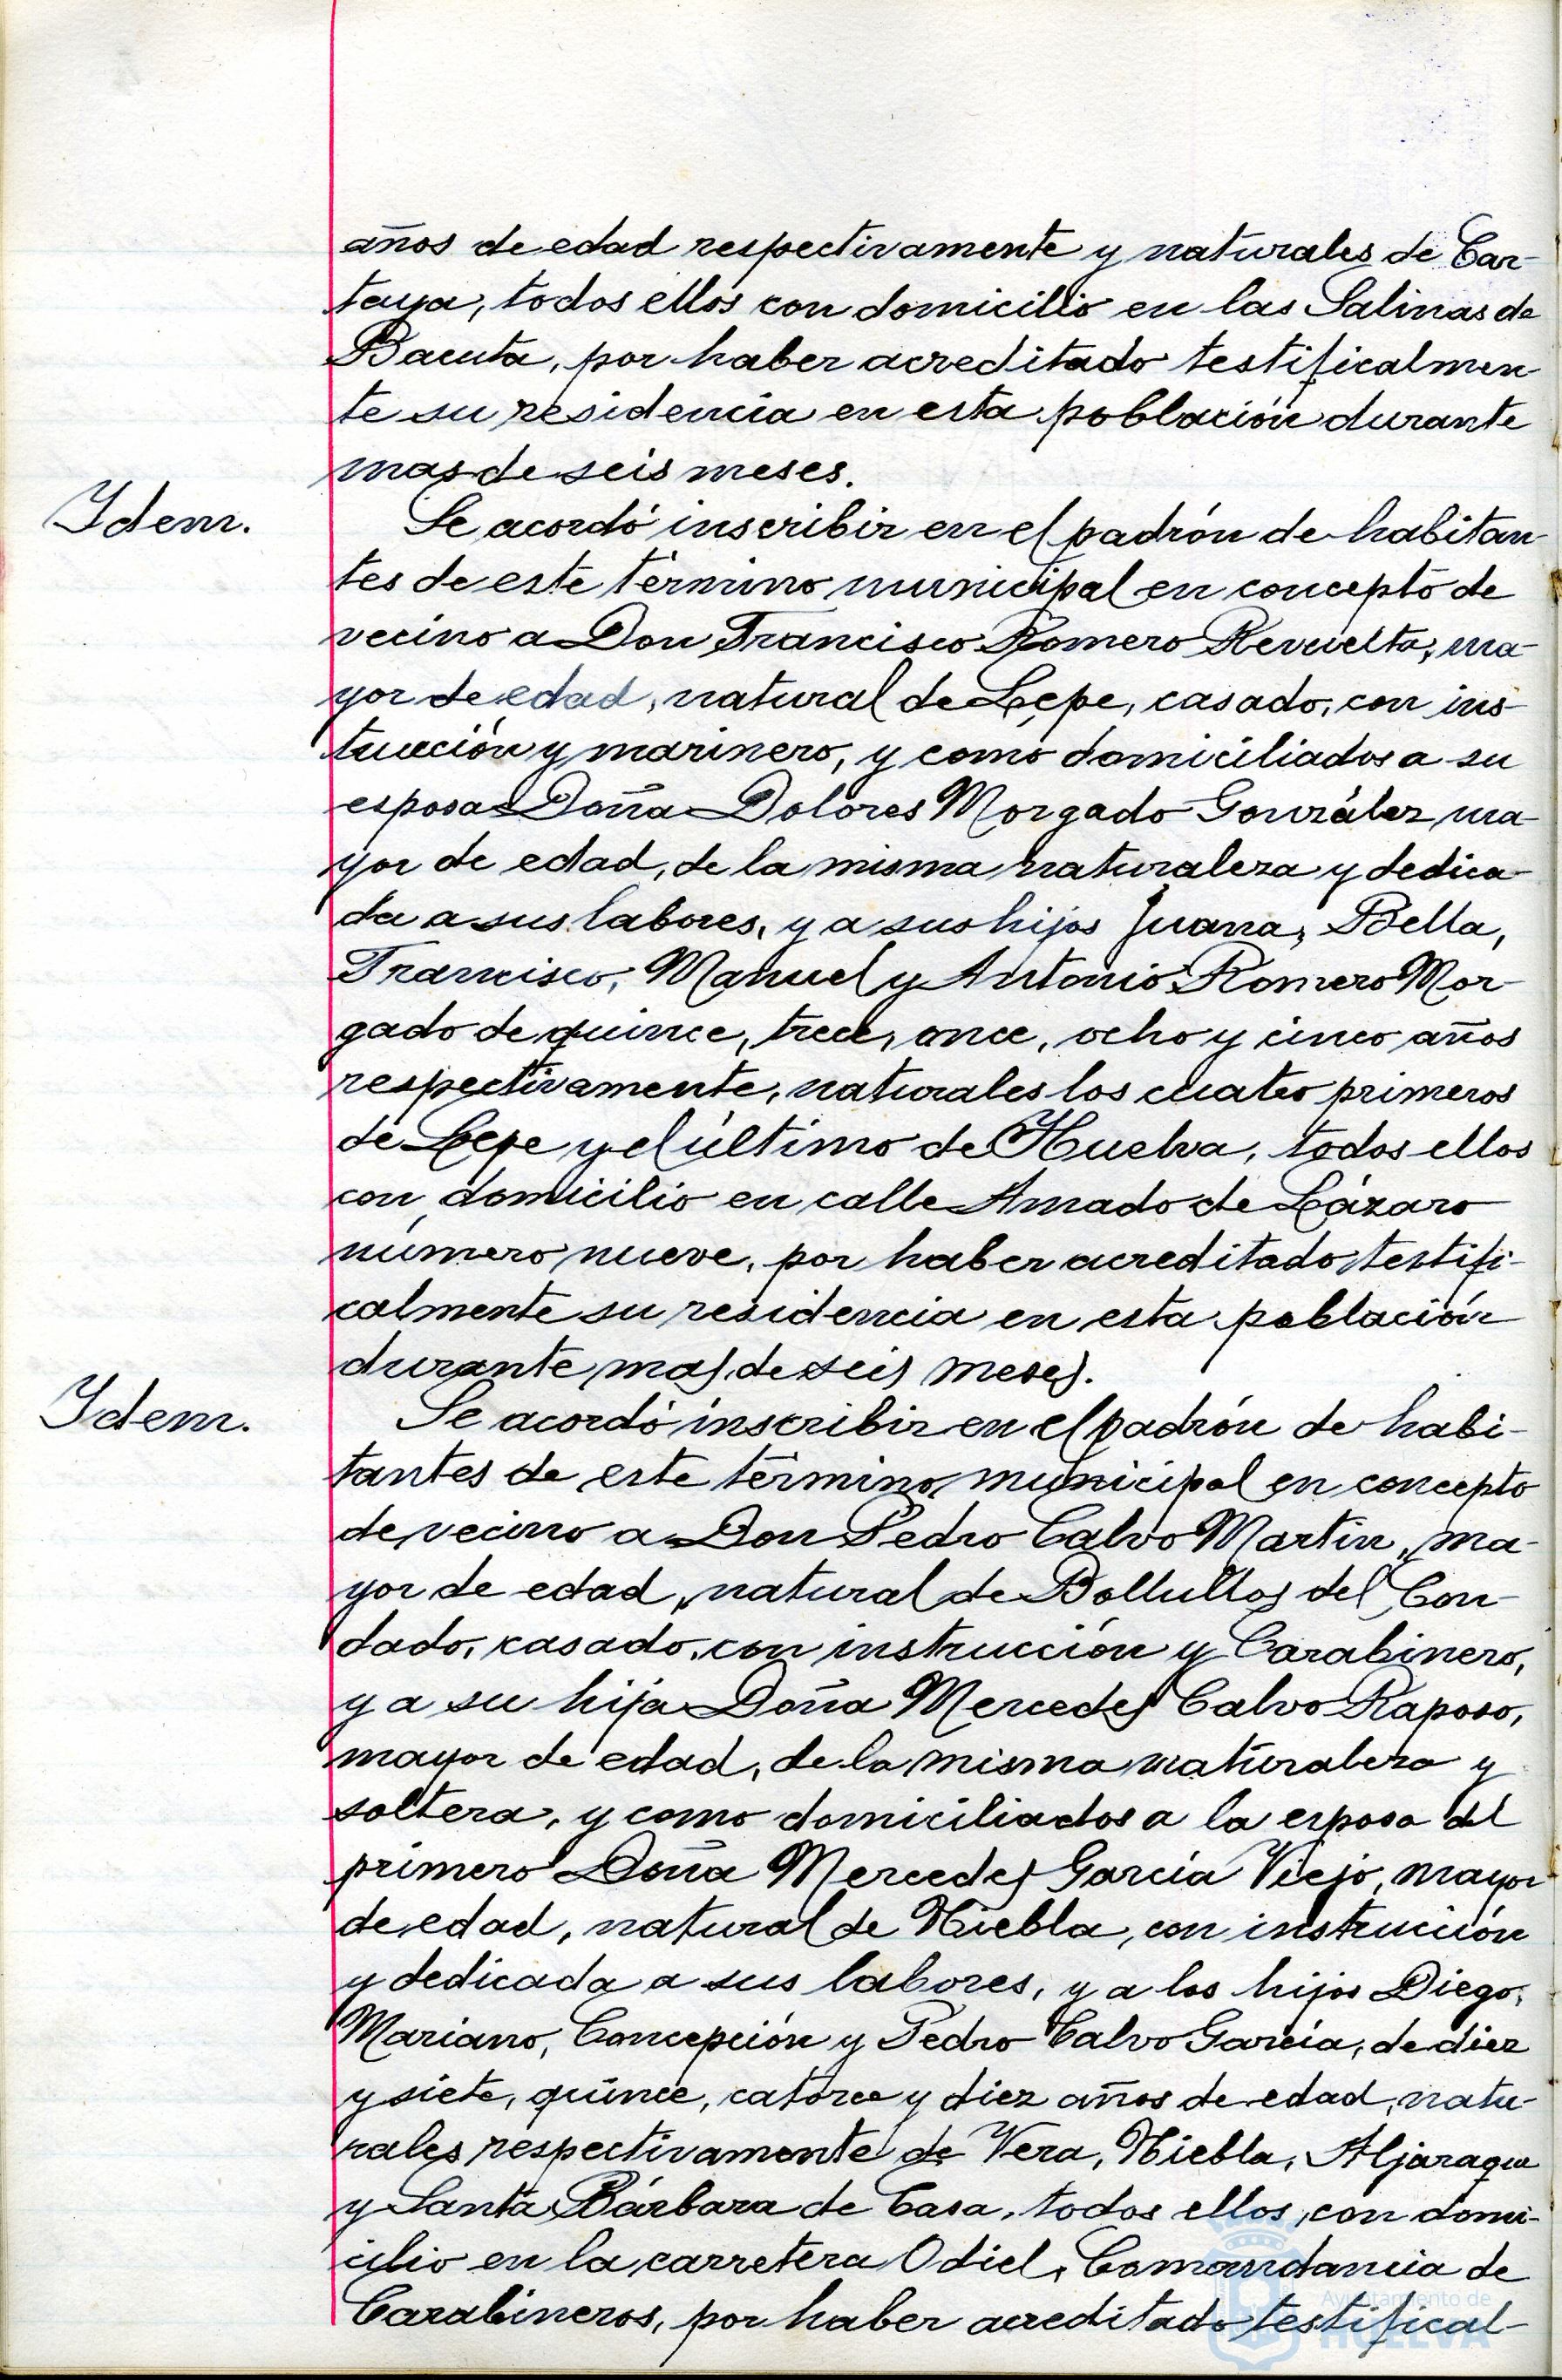 años de edad respectivamente y naturales de Car-
taya, todos ellos con domicilio en las Salinas de
Bacuta, por haber acreditado testificalmen-
te su residencia en esta población durante
mas de seis meses.
Idem.
Se acordó inscribir en el padrón de habitan-
tes de este término municipal en concepto de
vecino a Don Francisco Romero Revuelta, ma-
yor de edad, natural de Lepe, casado, con ins-
trucción y marinero, y como domiciliados a su
esposa Doña Dolores Morgado González, ma-
yor de edad, de la misma naturaleza y dedica-
da a sus labores, y a sus hijos Juana, Bella,
Francisco, Manuel y Antonio Romero Mor-
gado de quince, trece, once, ocho y cinco años
respectivamente, naturales los cuatro primeros
de Lepe y el último de Huelva, todos ellos
con domicilio en calle Amado de Lázaro
número nueve, por haber acreditado testifi-
calmente su residencia en esta población
durante mas de seis meses.
Idem.
Se acordó inscribir en el padrón de habi-
tantes de este término municipal en concepto
de vecino a Don Pedro Calvo Martín, ma-
yor de edad, natural de Bollullos del Con-
dado, casado, con instrucción y Carabinero,
y a su hija Doña Mercedes Calvo Raposo,
mayor de edad, de la misma naturaleza y
soltera, y como domiciliados a la esposa del
primero Doña Mercedes García Viejo, mayor
de edad, natural de Niebla, con instrucción
y dedicada a sus labores, y a los hijos Diego,
Mariano, Concepción y Pedro Calvo García, de diez
y siete, quince, catorce y diez años de edad, natu-
rales respectivamente de Vera, Niebla, Aljaraque
y Santa Bárbara de Casa, todos ellos, con domi-
cilio en la carretera Odiel, Comandancia de
Carabineros, por haber acreditado testifical-
Ayuntamiento de
HUELVA